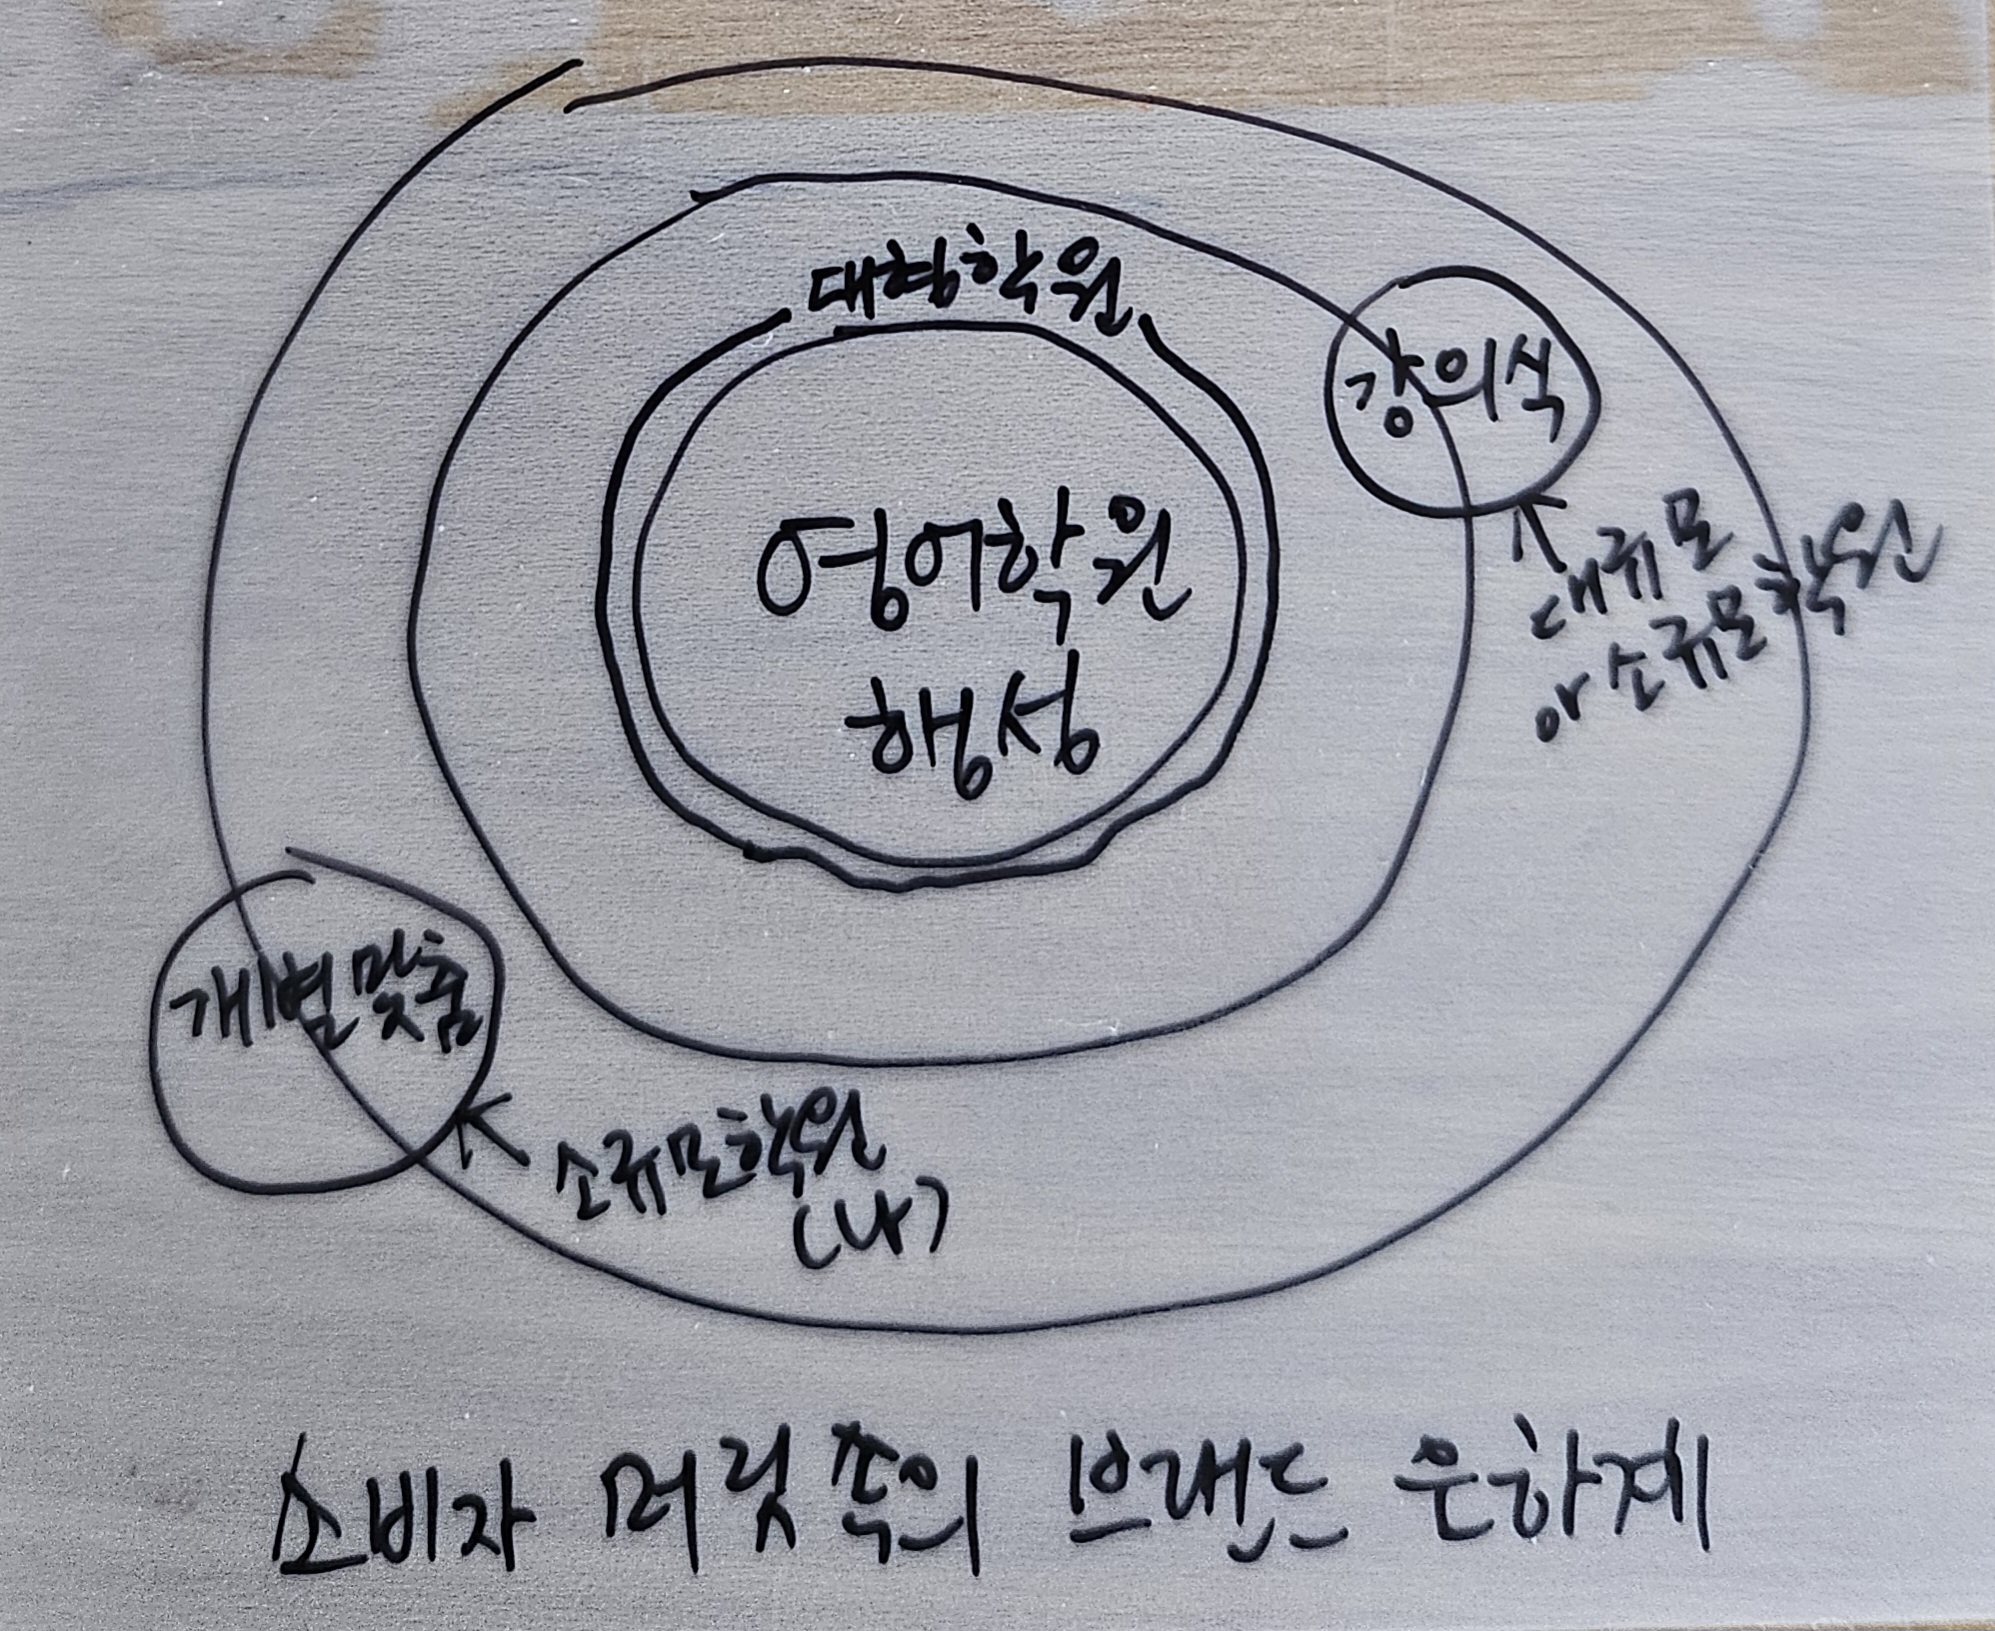 대형학원
강의식
영어학원
행성
대규모
or 소규모학원
개별맞춤
소규모학원
(나)
소비자 머릿쏙의 브랜드 은하계